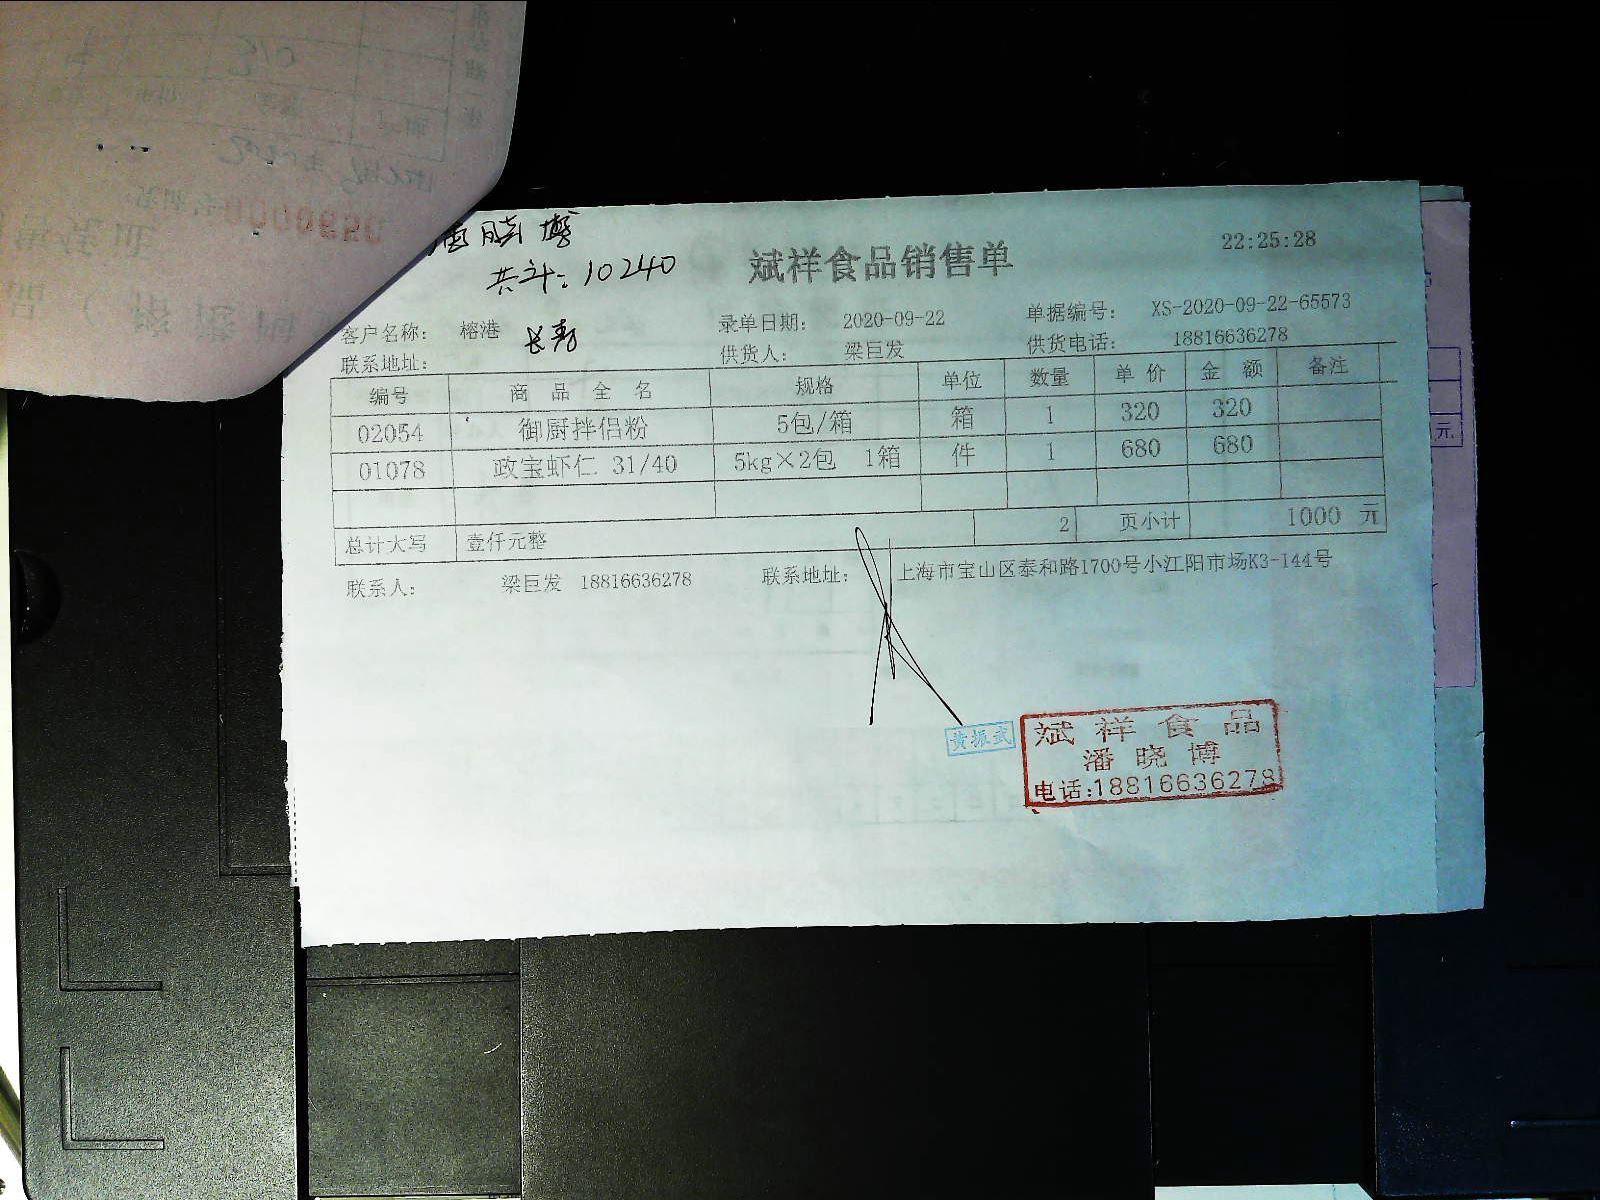 潘晓博
共计:10240
斌祥食品销售单
22:25:28
客户名称: 榕港 长寿 录单日期: 2020-09-22 单据编号: XS-2020-09-22-65573
联系地址: 供货人: 梁巨发 供货电话: 18816636278
编号 商品全名 规格 单位 数量 单价 金额 备注
02054 御厨拌侣粉 5包/箱 箱 1 320 320
01078 政宝虾仁 31/40 5kg×2包 1箱 件 1 680 680
总计大写 壹仟元整 2 页小计 1000 元
联系人: 梁巨发 18816636278 联系地址: 上海市宝山区泰和路1700号小江阳市场K3-144号
黄振武
斌祥食品
潘晓博
电话:18816636278
元